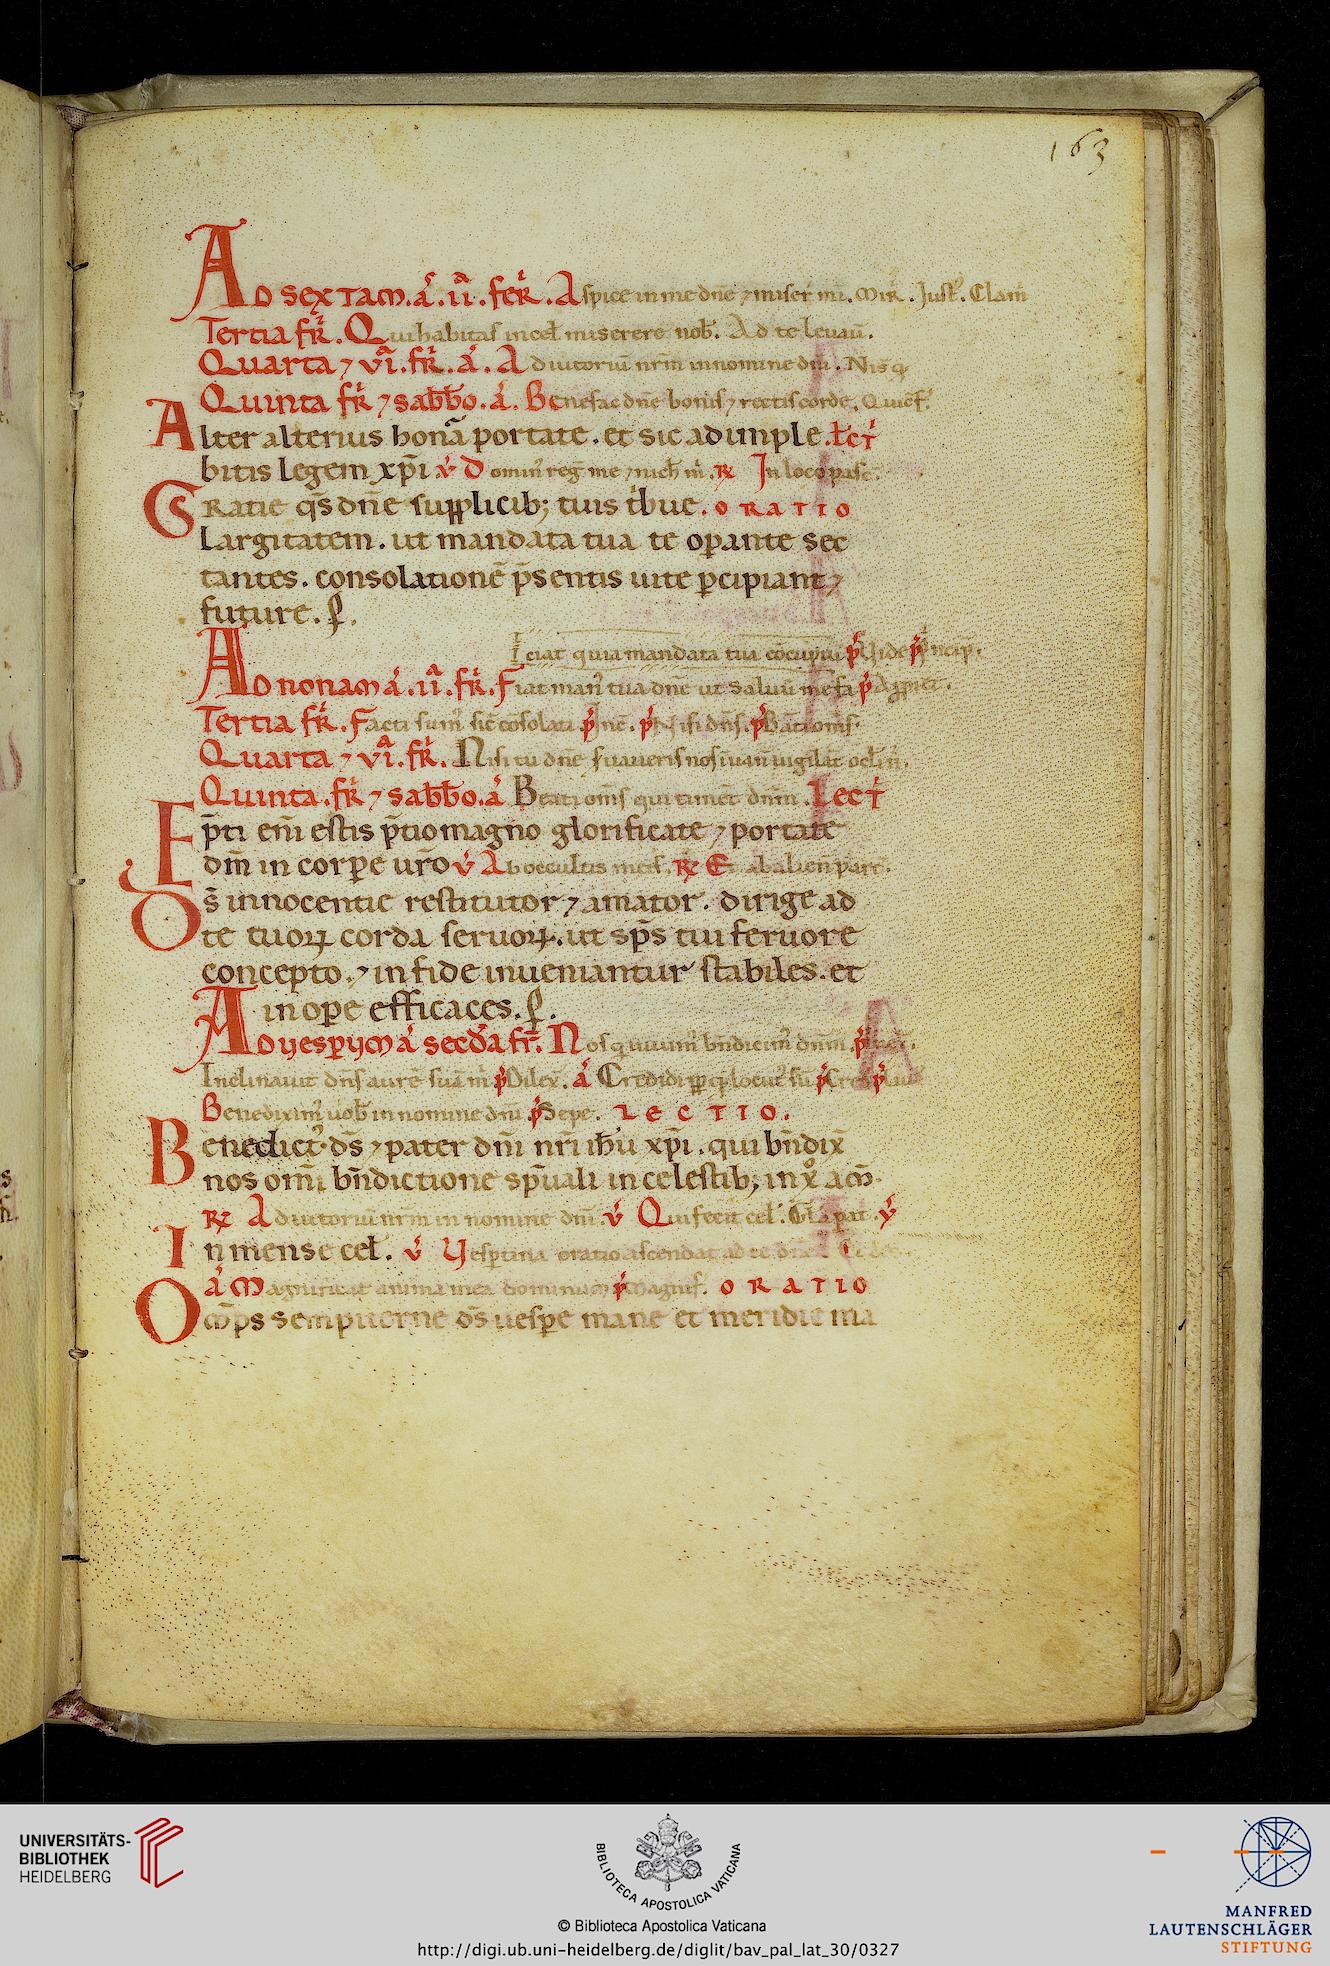 163
AD SEXTAM. a. ii. fer. Aspice in me dñe ⁊ miser mi. Mir. Just. Clam
Tertia fr. Qui habitas in cel miserere nob. Ad te leuaui.
Quarta ⁊ vi. fr. a. Adiutoriū nrm in nomine dñi. Nis q
Quinta fr ⁊ sabbo. a. Benefac dñe bonis ⁊ rectis corde.
Alter alterius honā portate. et sic adimple. Lect
bitis legem xp̄i v Domin reg me ⁊ nich m. R In loco pasc.
Gratie q̄s dñe supplicib; tuis tbue. ORATIO
Largitatem. ut mandata tua te opante sec
tantes. consolationē p̄sentis uite pcipiant ⁊
future. p.
ciat quia mandata tua
AD NONAM a. ii. fr. Fiat man tua dñe ut saluū me fa p
Tertia fr. Facti sum sic cōsolati. p p Nisi dñs. p
Quarta ⁊ vi. fr. Nisi tu dñe
Quinta. fr ⁊ sabbo. a Beati oms qui timēt dnm. Lect
Epti eni estis p̄tio magno glorificate ⁊ portate
dm̄ in corpe uro v Ab occultis meis. R Et ab alien parc.
Ds innocentie restitutor ⁊ amator. dirige ad
te tuoꝝ corda seruoꝝ. ut sp̄s tui feruore
concepto. ⁊ in fide inueniantur stabiles. et
in ope efficaces. p.
AD VESPERUM a secda fr. Nos qui uiuim bn̄dicim dnm. p
Inclinauit dn̄s aurē suā m p Dilex. a Credidi
Benedixim uob in nomine dñi p Sepe. LECTIO.
Benedict ds ⁊ pater dm̄i nr̄i ihū xp̄i. qui bn̄dix
nos omi bn̄dictione sp̄uali in celestib; in x amen.
R Adiutoriū nrm in nomine dñi. v Qui fecit cel. Gla pat. y
Inmense cel. v Vespertina oratio ascendat ad te
a Magnificat anima mea dominum p Magnif. ORATIO
Omps sempiterne ds uespe mane et meridie ma
UNIVERSITÄTS-
BIBLIOTHEK
HEIDELBERG
BIBLIOTECA APOSTOLICA VATICANA
© Biblioteca Apostolica Vaticana
http://digi.ub.uni-heidelberg.de/diglit/bav_pal_lat_30/0327
MANFRED
LAUTENSCHLÄGER
STIFTUNG